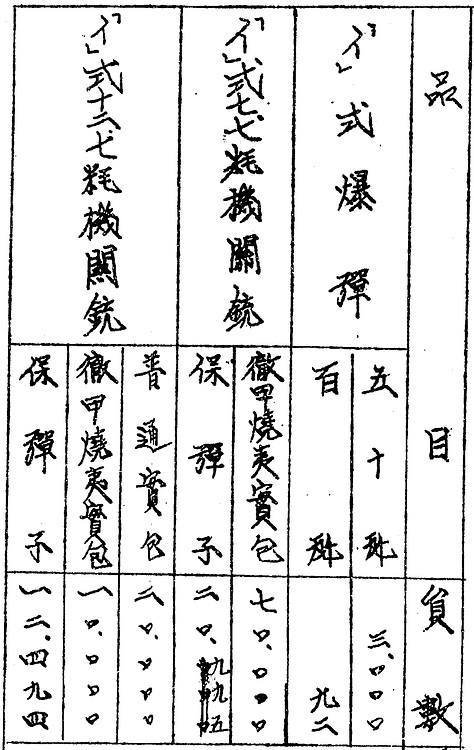 品目
員數
「イ」式爆彈
五十瓩
三、〇〇〇
百瓩
九二
「イ」式七、七粍機關銃
徹甲燒夷實包
七〇、〇〇〇
保彈子
二〇、九九五
「イ」式十二、七粍機關銃
普通實包
二〇、〇〇〇
徹甲燒夷實包
一〇、〇〇〇
保彈子
一二、四九四